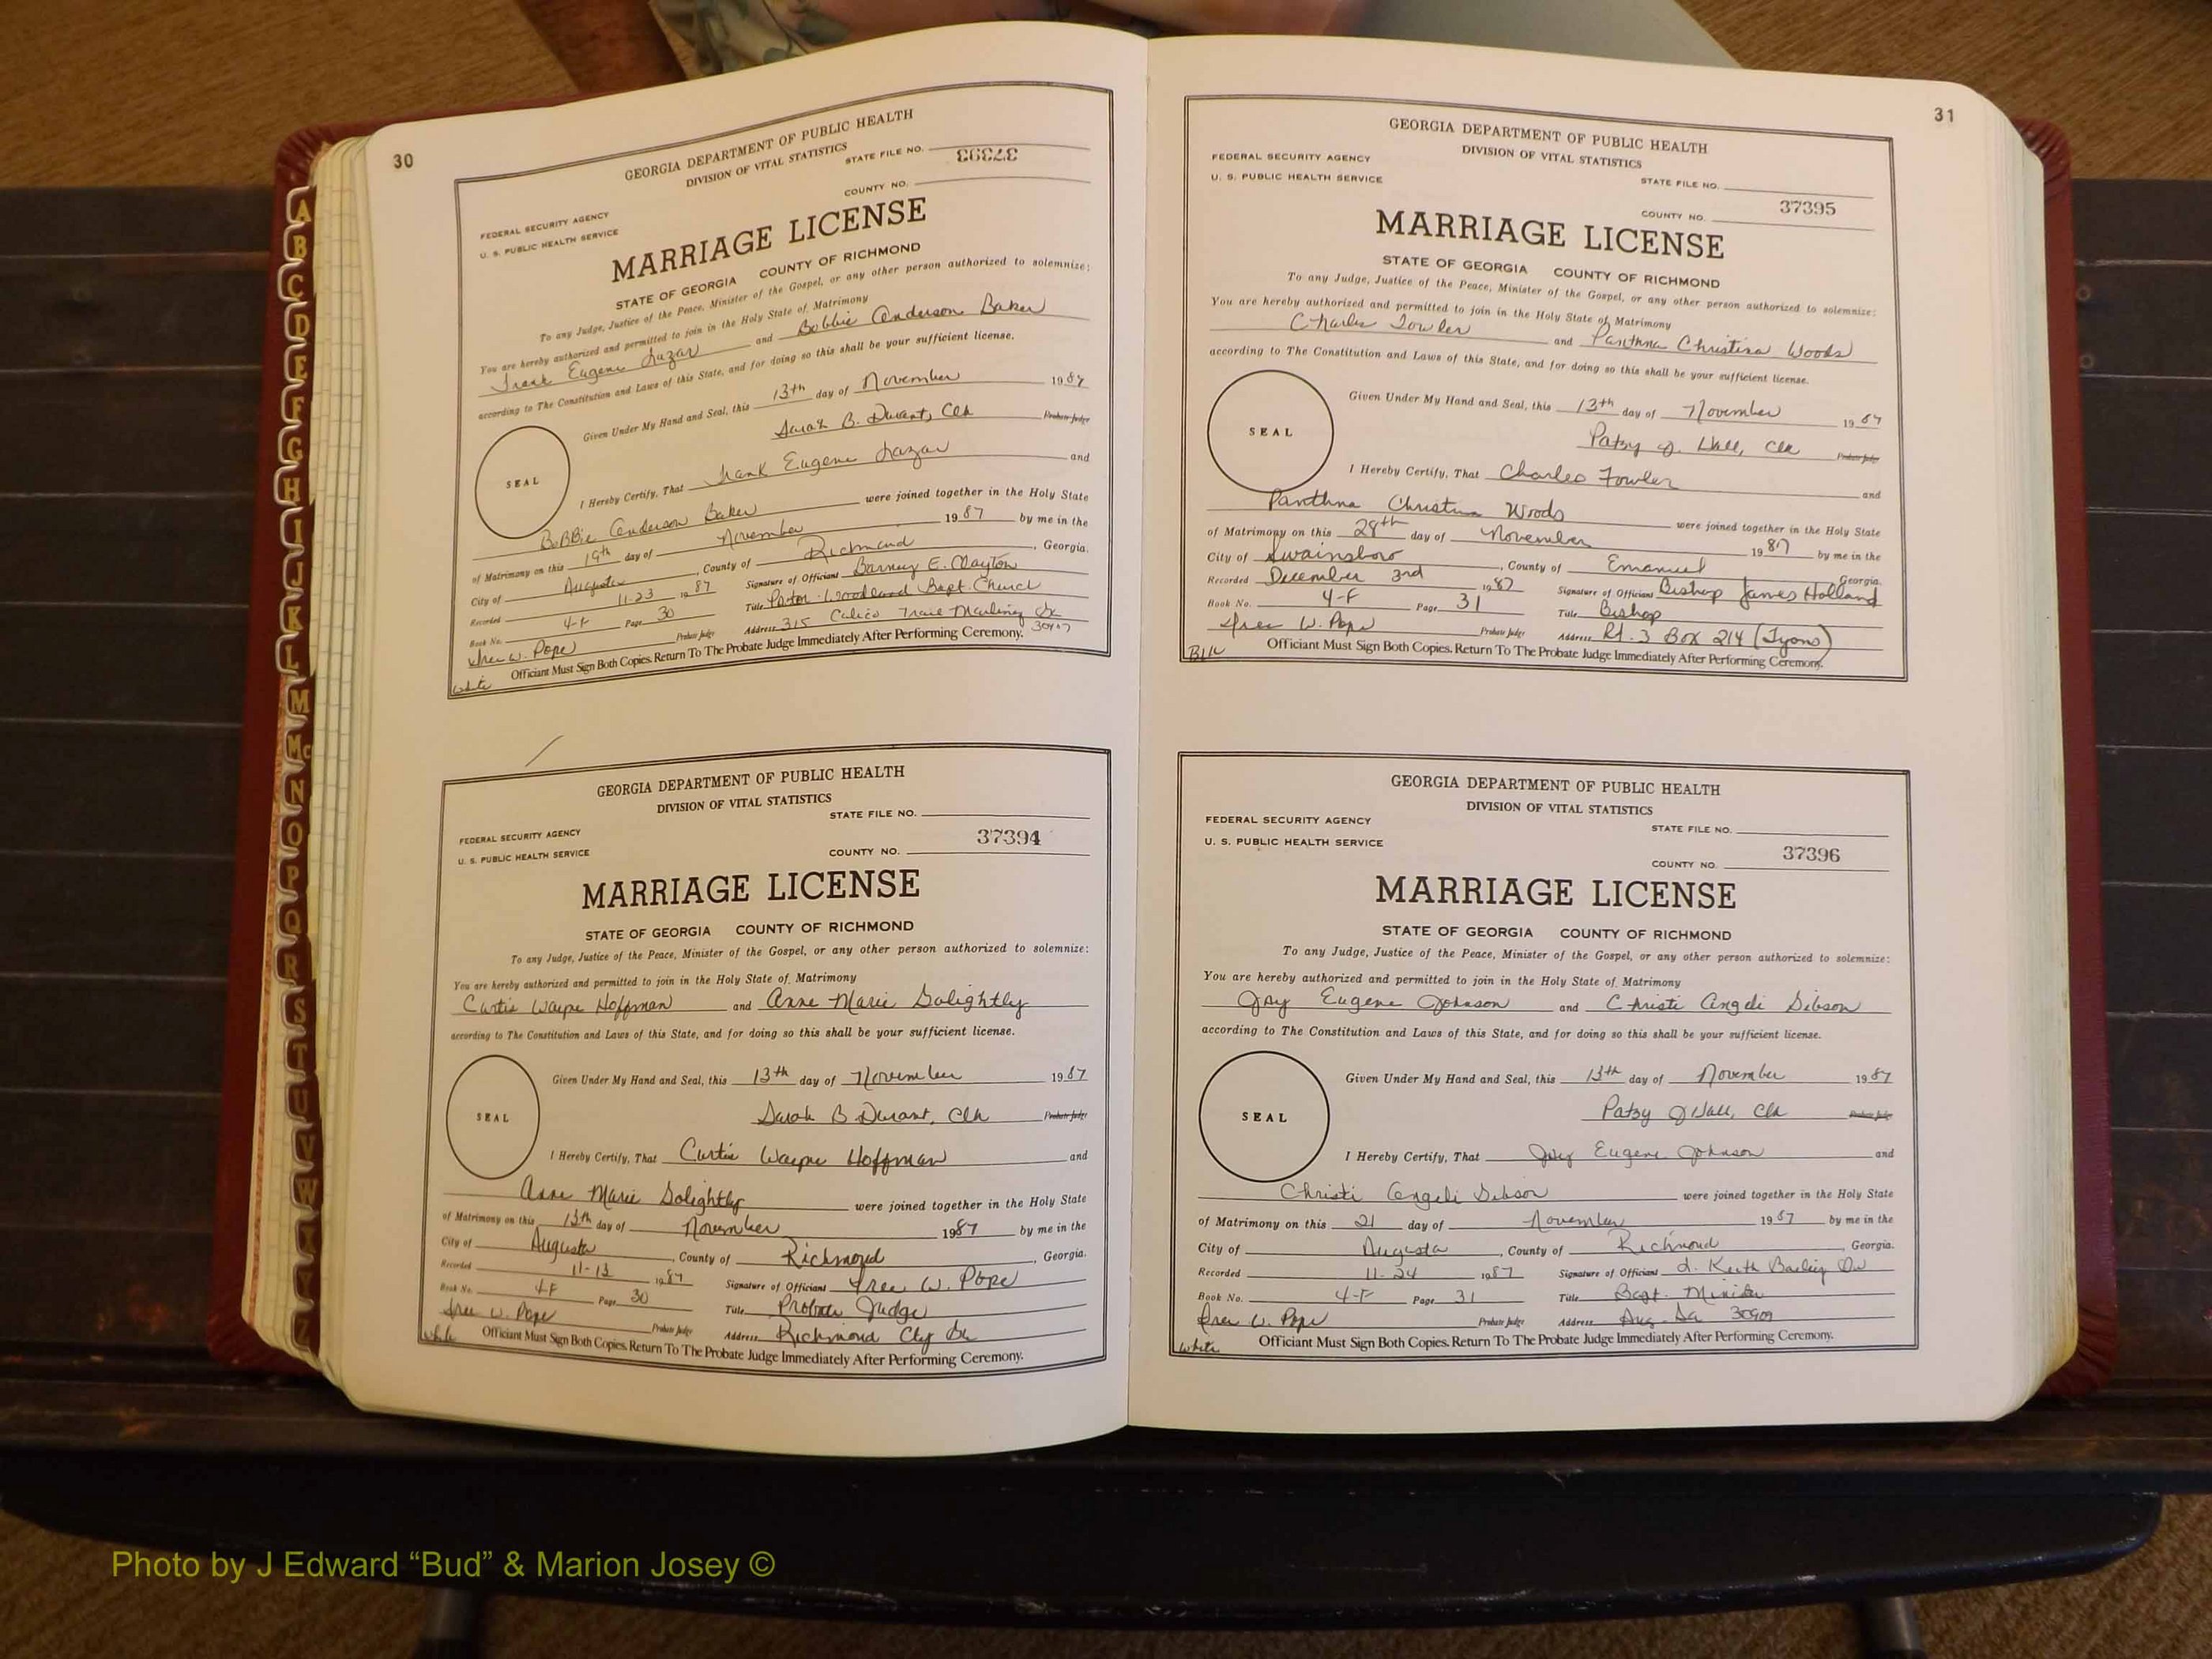 30
GEORGIA DEPARTMENT OF PUBLIC HEALTH
DIVISION OF VITAL STATISTICS
STATE FILE NO. 37393
COUNTY NO.
FEDERAL SECURITY AGENCY
U. S. PUBLIC HEALTH SERVICE
MARRIAGE LICENSE
STATE OF GEORGIA COUNTY OF RICHMOND
To any Judge, Justice of the Peace, Minister of the Gospel, or any other person authorized to solemnize:
You are hereby authorized and permitted to join in the Holy State of Matrimony
Frank Eugene Lazar and Bobbie Anderson Baker
according to The Constitution and Laws of this State, and for doing so this shall be your sufficient license.
Given Under My Hand and Seal, this 13th day of November 1987
Sarah B. Durant, Clk Probate Judge
SEAL
I Hereby Certify, That Frank Eugene Lazar and
Bobbie Anderson Baker were joined together in the Holy State
of Matrimony on this 19th day of November 1987 by me in the
City of Augusta, County of Richmond, Georgia.
Recorded 11-23 1987 Signature of Officiant Barney E. Clayton
Book No. 4-F Page 30 Title Pastor Woodland Bapt. Church
Iree W. Pope Probate Judge Address 315 Calico Trace Martinez Ga
White Officiant Must Sign Both Copies. Return To The Probate Judge Immediately After Performing Ceremony.
GEORGIA DEPARTMENT OF PUBLIC HEALTH
DIVISION OF VITAL STATISTICS
STATE FILE NO.
FEDERAL SECURITY AGENCY
U. S. PUBLIC HEALTH SERVICE
COUNTY NO. 37394
MARRIAGE LICENSE
STATE OF GEORGIA COUNTY OF RICHMOND
To any Judge, Justice of the Peace, Minister of the Gospel, or any other person authorized to solemnize:
You are hereby authorized and permitted to join in the Holy State of Matrimony
Curtis Wayne Hoffman and Anne Marie Golightly
according to The Constitution and Laws of this State, and for doing so this shall be your sufficient license.
Given Under My Hand and Seal, this 13th day of November 1987
Sarah B Durant, Clk Probate Judge
SEAL
I Hereby Certify, That Curtis Wayne Hoffman and
Anne Marie Golightly were joined together in the Holy State
of Matrimony on this 13th day of November 1987 by me in the
City of Augusta, County of Richmond, Georgia.
Recorded 11-13 1987 Signature of Officiant Iree W. Pope
Book No. 4-F Page 30 Title Probate Judge
Iree W. Pope Probate Judge Address Richmond Cty Ga
White Officiant Must Sign Both Copies. Return To The Probate Judge Immediately After Performing Ceremony.
31
GEORGIA DEPARTMENT OF PUBLIC HEALTH
DIVISION OF VITAL STATISTICS
FEDERAL SECURITY AGENCY
U. S. PUBLIC HEALTH SERVICE
STATE FILE NO.
COUNTY NO. 37395
MARRIAGE LICENSE
STATE OF GEORGIA COUNTY OF RICHMOND
To any Judge, Justice of the Peace, Minister of the Gospel, or any other person authorized to solemnize:
You are hereby authorized and permitted to join in the Holy State of Matrimony
Charles Fowler and Panthna Christina Woods
according to The Constitution and Laws of this State, and for doing so this shall be your sufficient license.
Given Under My Hand and Seal, this 13th day of November 1987
Patsy J. Hall, Clk Probate Judge
SEAL
I Hereby Certify, That Charles Fowler and
Panthna Christina Woods were joined together in the Holy State
of Matrimony on this 28th day of November 1987 by me in the
City of Swainsboro, County of Emanuel Georgia.
Recorded December 3rd 1987 Signature of Officiant Bishop James Holland
Book No. 4-F Page 31 Title Bishop
Iree W. Pope Probate Judge Address Rt. 3 Box 214 (Lyons)
Blk Officiant Must Sign Both Copies. Return To The Probate Judge Immediately After Performing Ceremony.
GEORGIA DEPARTMENT OF PUBLIC HEALTH
DIVISION OF VITAL STATISTICS
FEDERAL SECURITY AGENCY
U. S. PUBLIC HEALTH SERVICE
STATE FILE NO.
COUNTY NO. 37396
MARRIAGE LICENSE
STATE OF GEORGIA COUNTY OF RICHMOND
To any Judge, Justice of the Peace, Minister of the Gospel, or any other person authorized to solemnize:
You are hereby authorized and permitted to join in the Holy State of Matrimony
Joey Eugene Johnson and Christi Angeli Gibson
according to The Constitution and Laws of this State, and for doing so this shall be your sufficient license.
Given Under My Hand and Seal, this 13th day of November 1987
Patsy J Hall, Clk Probate Judge
SEAL
I Hereby Certify, That Joey Eugene Johnson and
Christi Angeli Gibson were joined together in the Holy State
of Matrimony on this 21 day of November 1987 by me in the
City of Augusta, County of Richmond, Georgia.
Recorded 11-24 1987 Signature of Officiant Keith Bailey
Book No. 4-F Page 31 Title Bapt. Minister
Iree W. Pope Probate Judge Address Aug. Ga 30909
White Officiant Must Sign Both Copies. Return To The Probate Judge Immediately After Performing Ceremony.
A
B
C
D
E
F
G
H
I
J
K
L
M
Mc
N
O
P
Q
R
S
T
U
V
W
X
Y
Z
Photo by J Edward “Bud” & Marion Josey ©